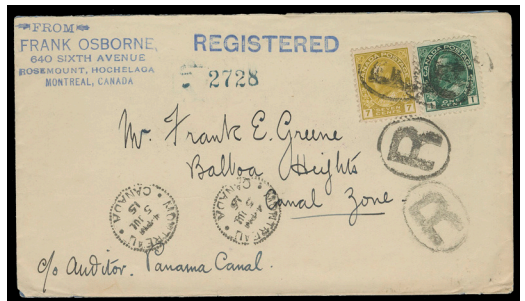 FROM
FRANK OSBORNE,
640 SIXTH AVENUE
ROSEMOUNT, HOCHELAGA
MONTREAL, CANADA
REGISTERED
2728
CANADA POSTAGE
7 CENTS 7
CANADA POSTAGE
1 1
R
Mr. Frank E. Greene
Balboa Heights
Canal Zone.
R
MONTREAL
4-PM
JUL
5
15
CANADA
MONTREAL
4-PM
JUL
5
15
CANADA
c/o Auditor. Panama Canal.